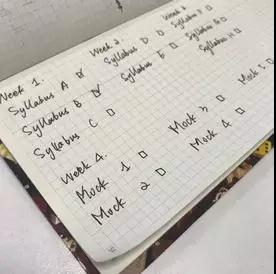 Week 1.
Syllabus A
Syllabus B
Syllabus C
Week 2.
Syllabus D
Syllabus E
Week
Syllabus F
Syllabus G
Syllabus H
Week 4.
Mock 1
Mock 2
Mock 3
Mock 4
Mock 5